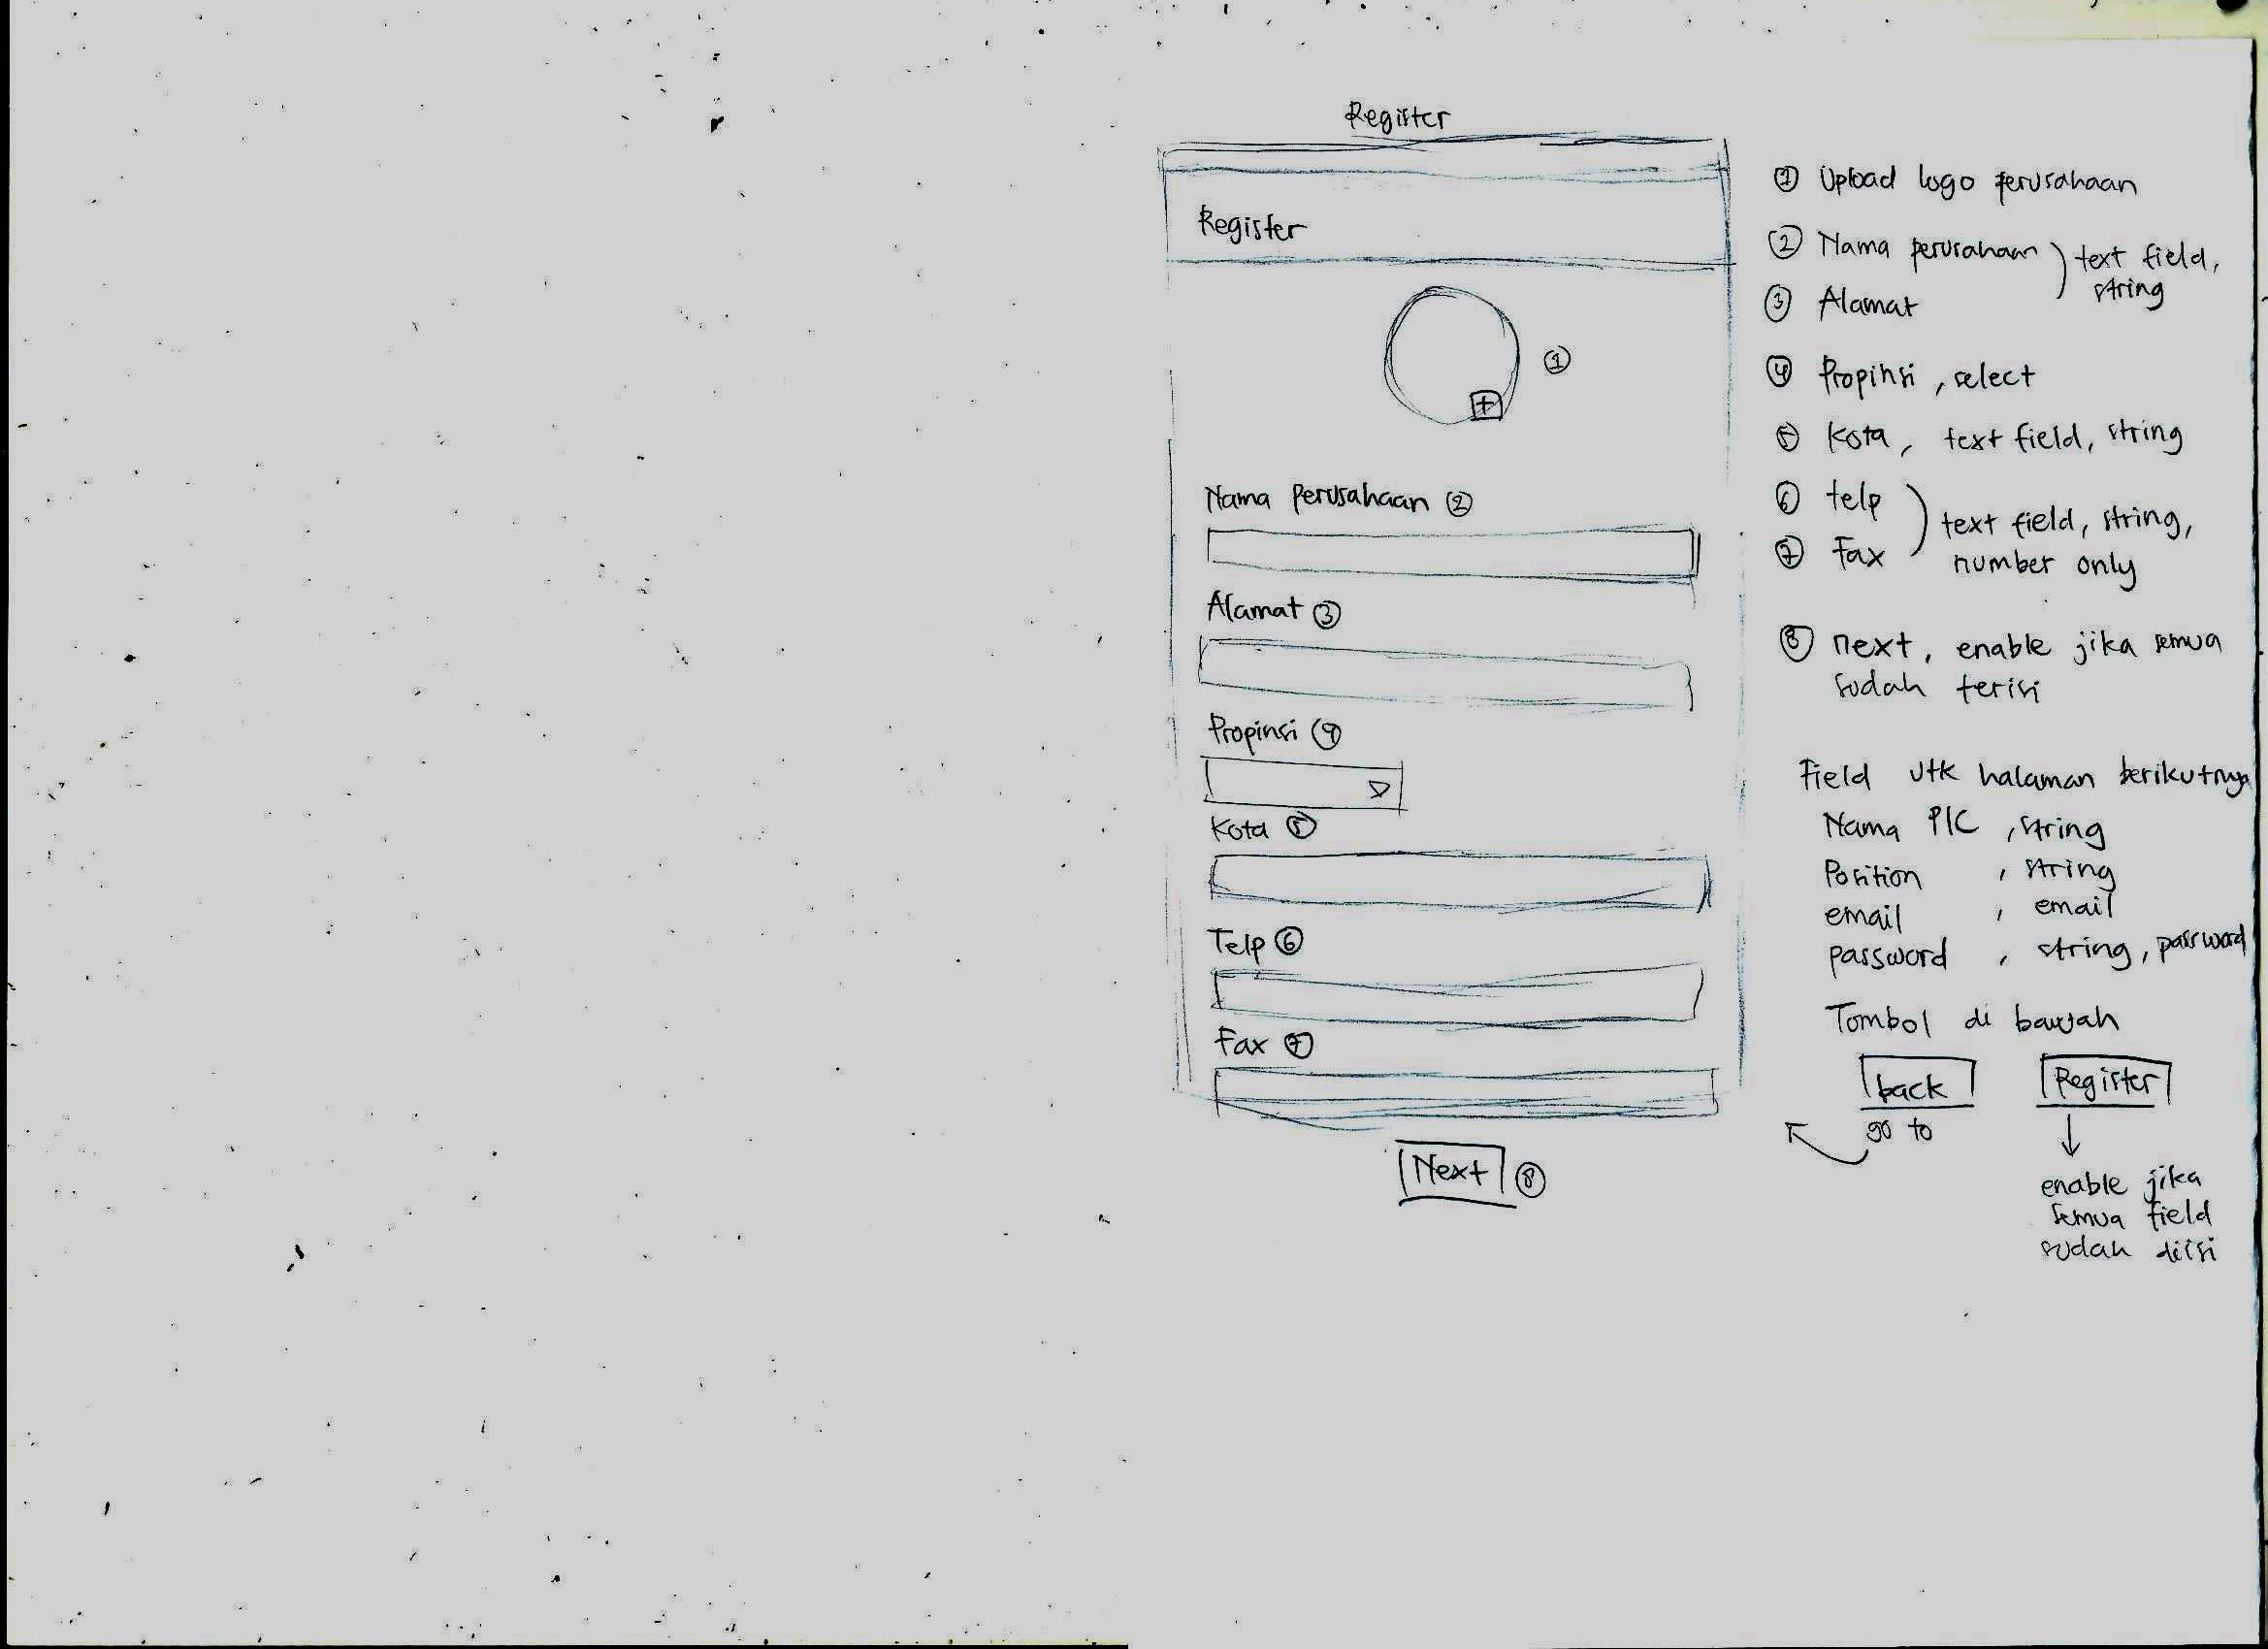 Register
Register
①
+
Nama perusahaan ②
Alamat ③
Propinsi ④
Kota ⑤
Telp ⑥
Fax ⑦
Next ⑧
① Upload logo perusahaan
② Nama perusahaan
③ Alamat
text field,
string
④ Propinsi, select
⑤ Kota, text field, string
⑥ telp
⑦ Fax
text field, string,
number only
⑧ next, enable jika semua
sudah terisi
Field utk halaman berikutnya
Nama PIC , string
Position , string
email , email
password , string, password
Tombol di bawah
back
Register
go to
enable jika
semua field
sudah diisi